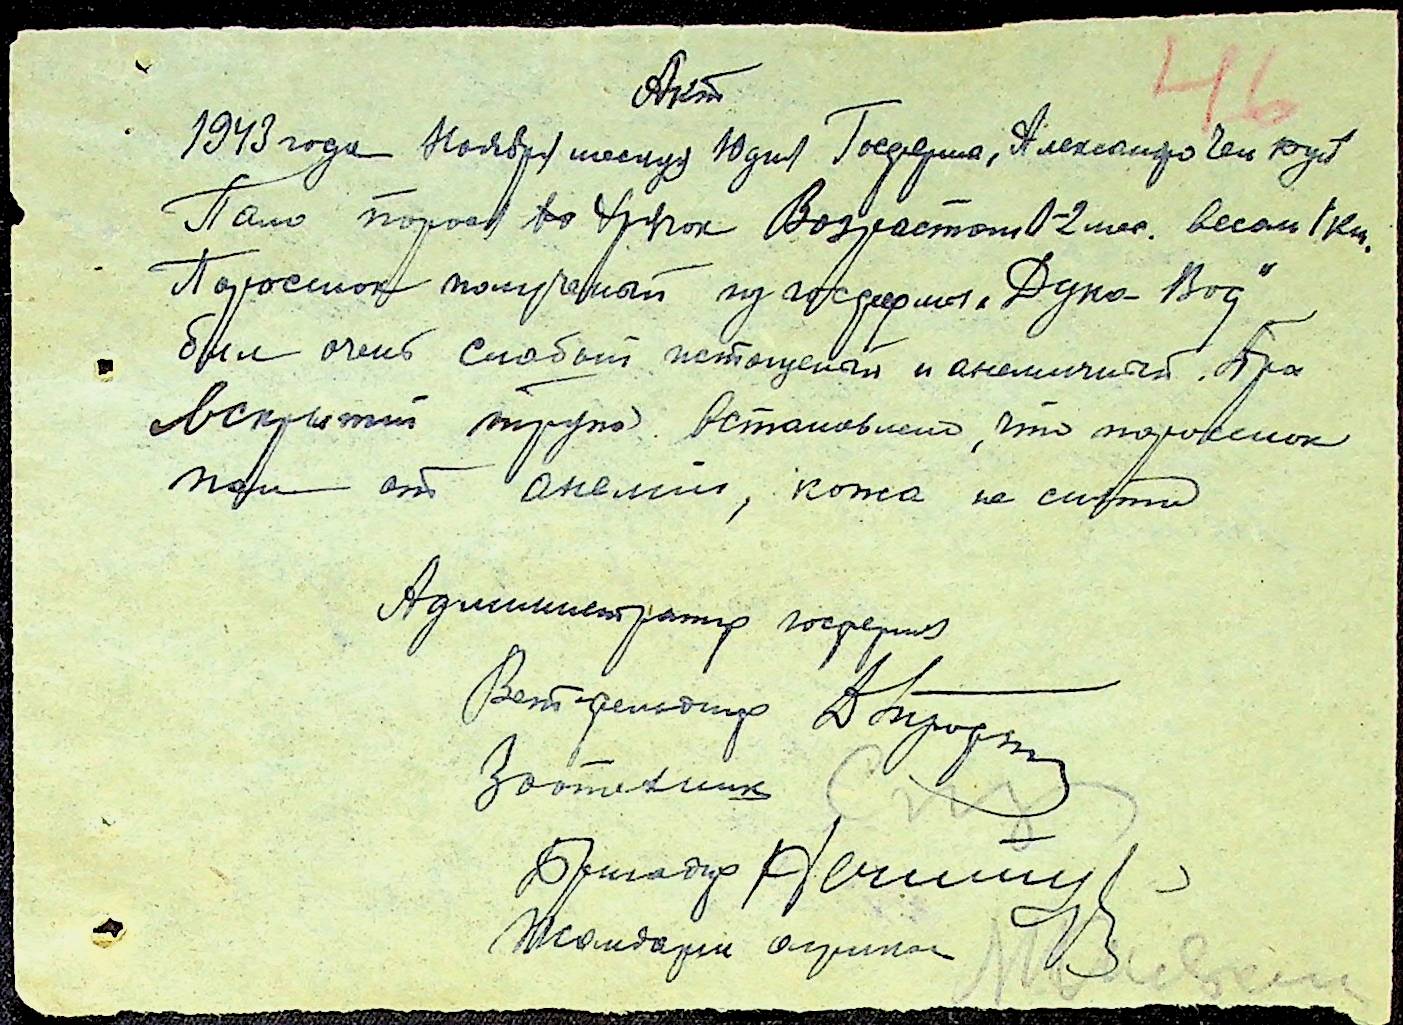 46
Акт
1943 года Ноября месяца 10 дня Госферма, Александро
Пало порося Возрастом 1-2 мес. весом 1 кг.
Поросенок полученый из госфермы „Дука-Вод"
был очень слабый истощеный и анемичный. Пра
вскрытий трупа встановлено, что поросенок
пал от анемии, кожа не снята
Администратор госфермы
Ветфельдшер
Зоотехник
Бригадир
Жандарм